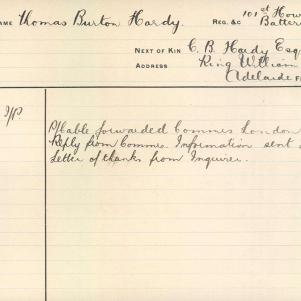 AME Thomas Burton Hardy. REG. &C 101st How
Batter
NEXT OF KIN C. B. Hardy Esq
ADDRESS King William
Adelaide
P/Cable forwarded Commrs London
Reply from Commr. Information sent
Letter of thanks from Inquirer.